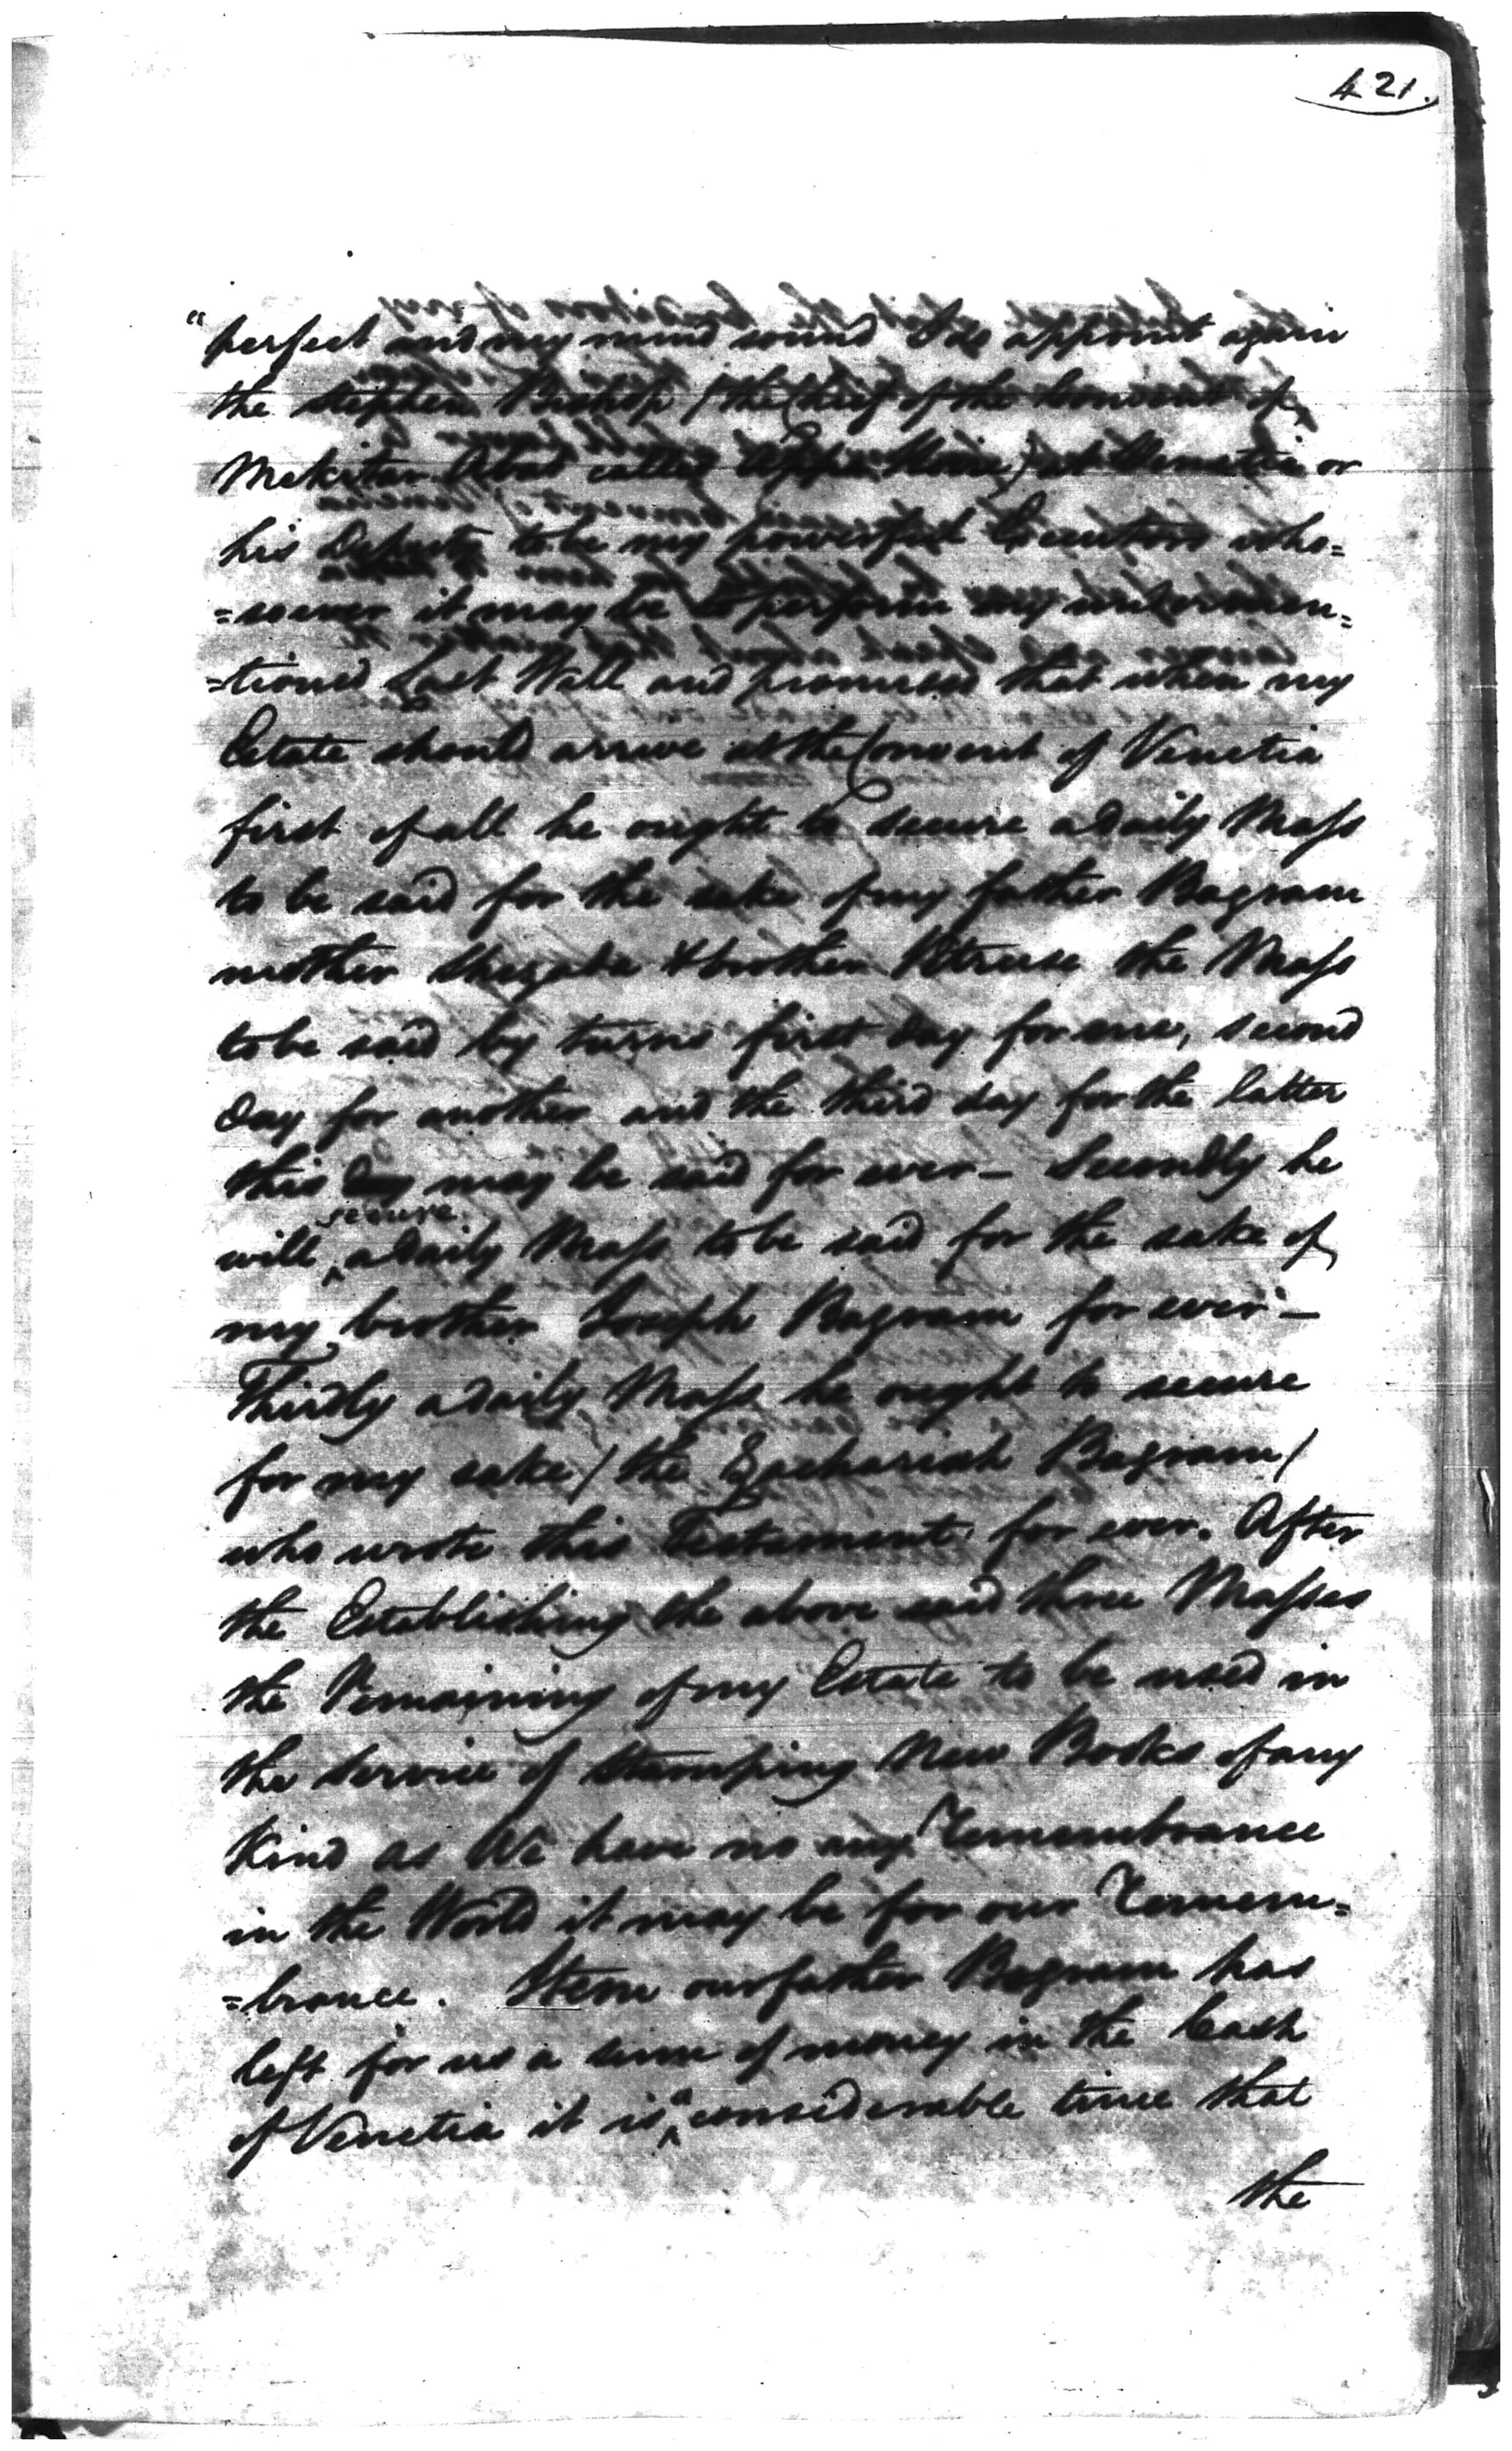 421.
"perfect and my mind sound I do appoint again
the Stephen Bishop / the Chief of the Convent of
Mekitar Abud called / at Venetia or
his Deputy to be my powerful Executors who=
=soever it may be to perform my undermen=
=tioned Last Will and promised that when my
Estate should arrive at the Convent of Venetia
first of all he ought to secure a daily Mass
to be said for the sake of my father Bagram
mother & brother Petruse the Mass
to be said by turns first day for one, second
day for another and the third day for the latter
this may be said for ever – Secondly he
will secure a daily Mass to be said for the sake of
my brother Joseph Bagram for ever –
Thirdly a daily Mass he ought to secure
for my sake / the Zachariah Bagram /
who wrote this Testament for ever. After
the Establishing the above said three Masses
the Remaining of my Estate to be used in
the service of Stamping New Books of any
Kind as We have no any Remembrance
in the World it may be for our Remem=
=brance. Item our father Bagram has
left for us a sum of money in the Cash
of Venetia it is a considerable time that
the